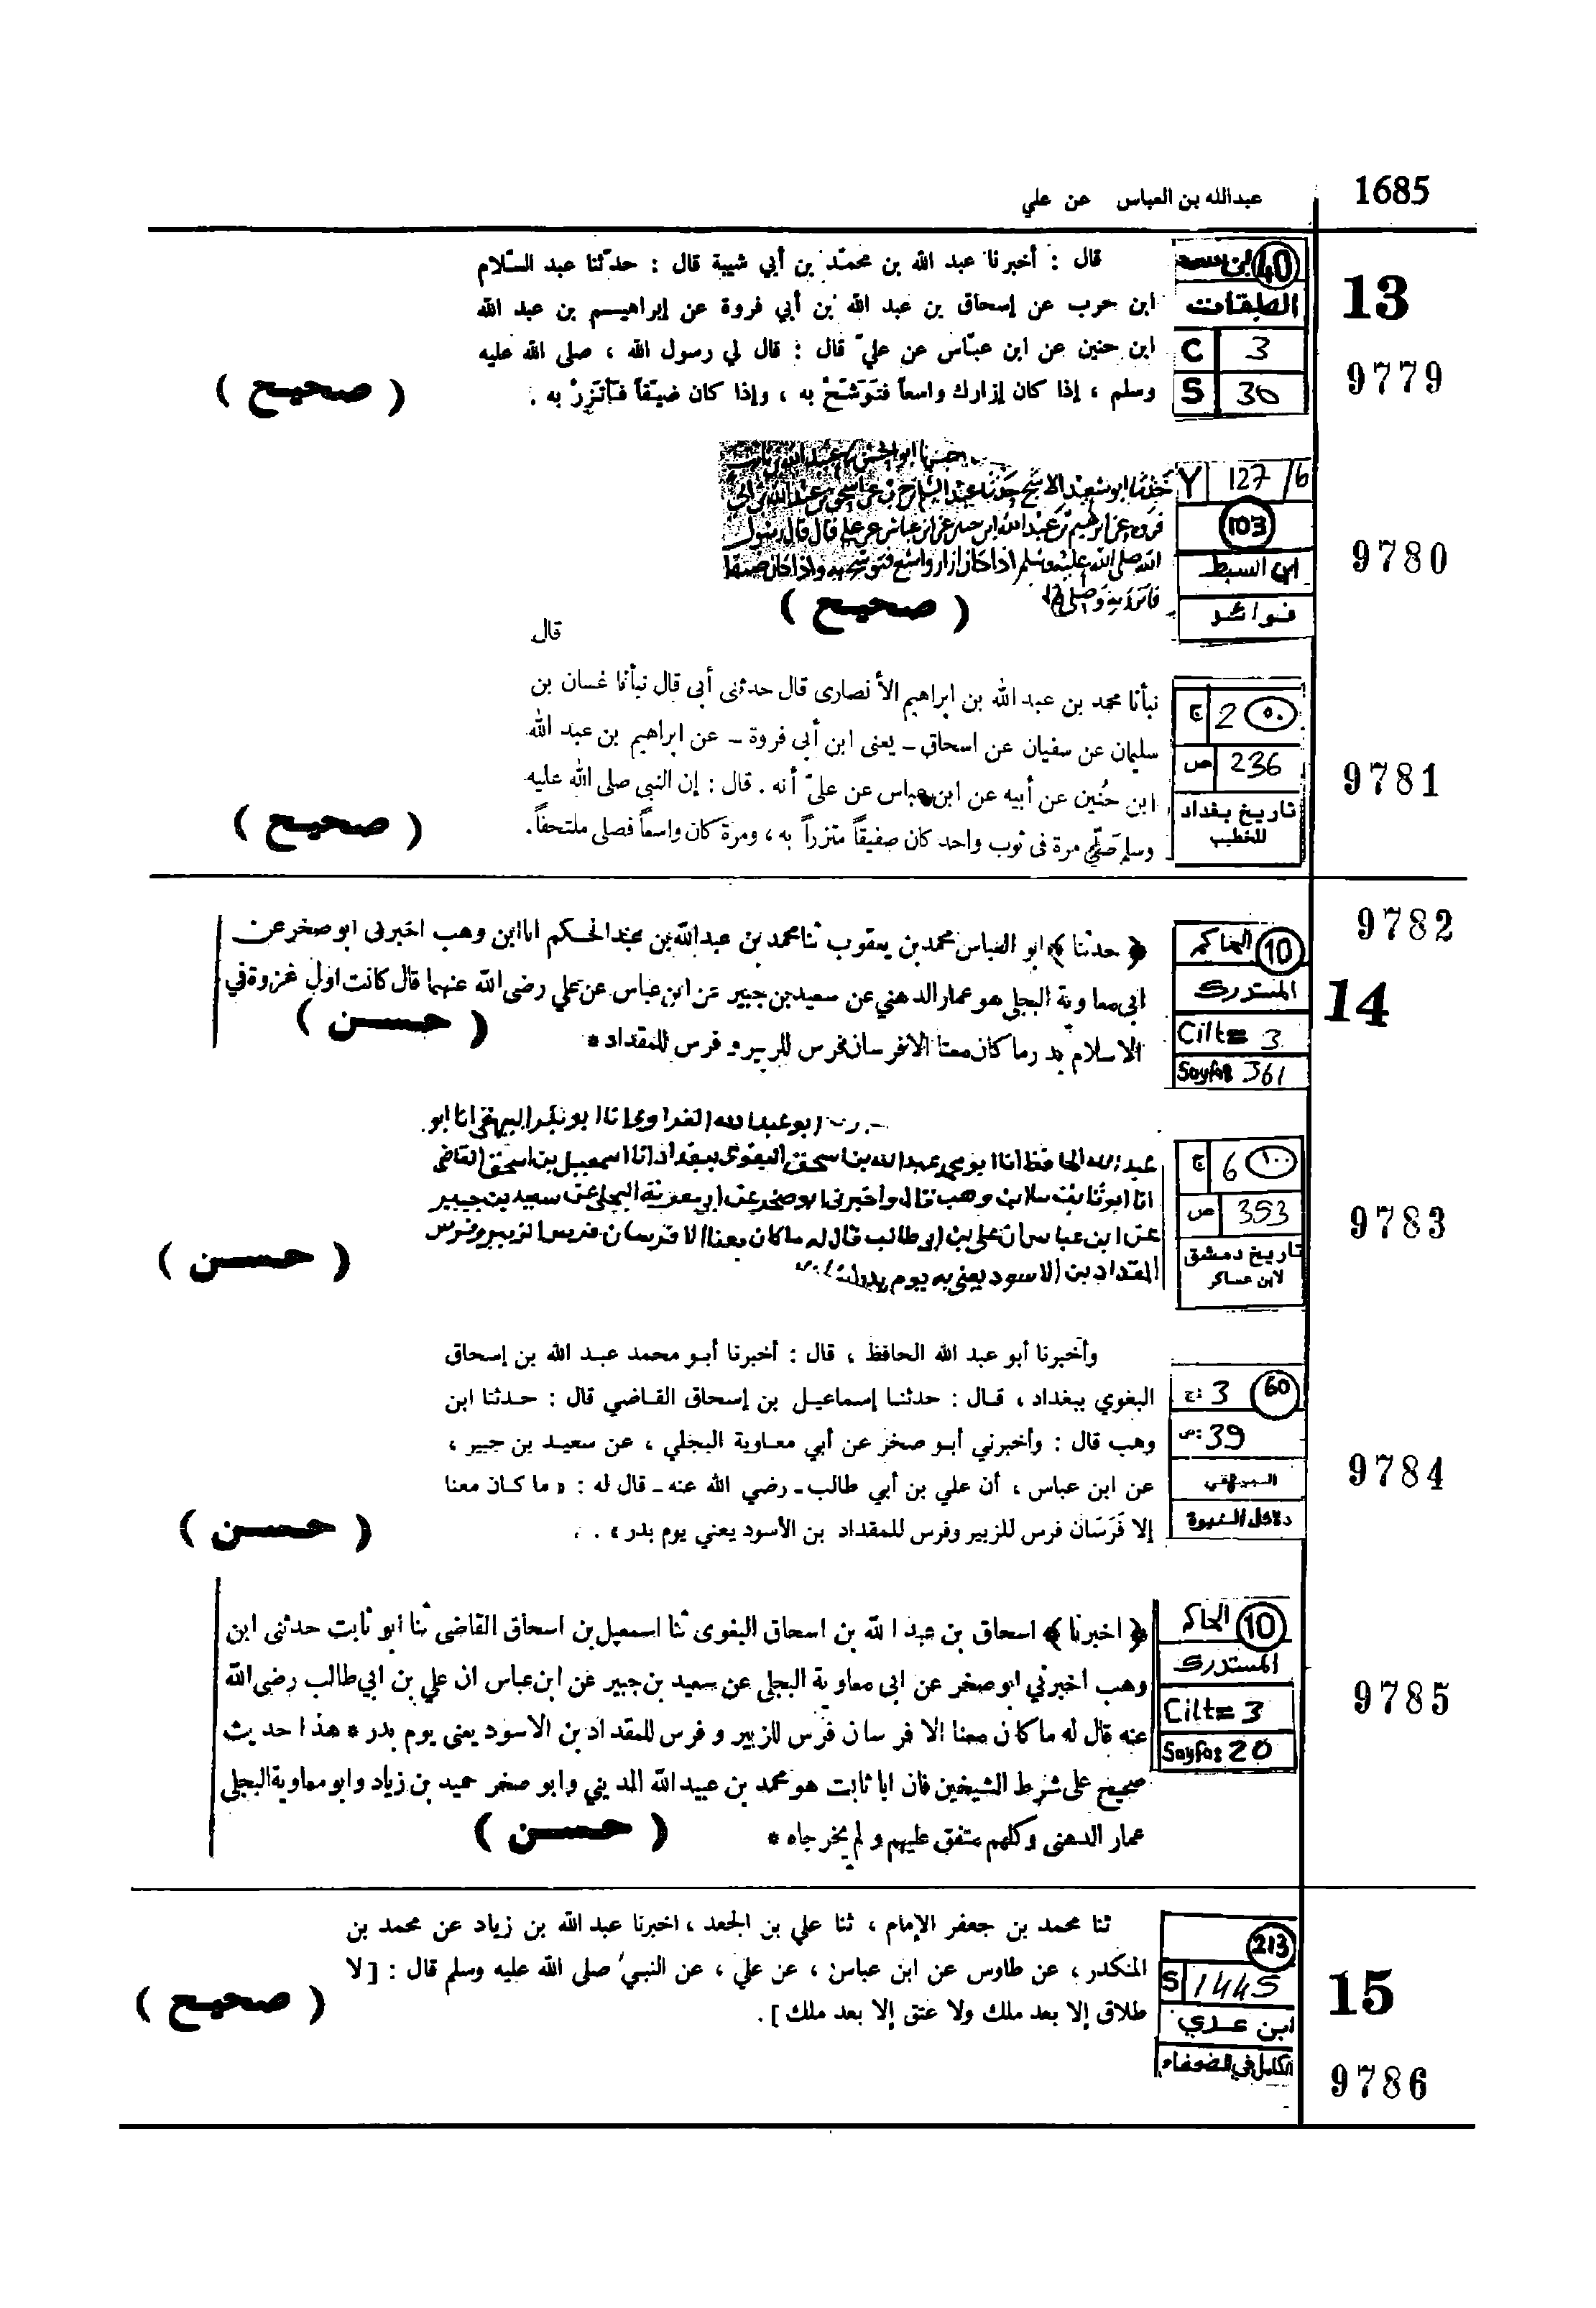 1685
عبدالله بن العباس عن علي
13
9779
40
الطبقات
C 3
S 30
قال : أخبرنا عبد الله بن محمّد بن أبي شيبة قال : حدّثنا عبد السّلام
ابن حرب عن إسحاق بن عبد الله بن أبي فروة عن إبراهيم بن عبد الله
ابن حنين عن ابن عبّاس عن عليّ قال : قال لي رسول الله ، صلى الله عليه
وسلم ، إذا كان إزارك واسعاً فتَوَشّحْ به ، وإذا كان ضيّقاً فأتزِرْ به .
( صحيح )
9780
Y 127/6
103
ابن السبط
فوائد
حدثنا ابو سعيد الاشج حدثنا عبد السلام بن حرب عن اسحق بن عبد الله بن ابي
فروة عن ابرهيم بن عبد الله ابن حنين عن ابن عباس عن علي قال قال رسول
الله صلى الله عليه وسلم اذا كان ازار واسع فتوشح به واذا كان ضيقا
( صحيح )
قال
9781
ج 2 ٥٠
ص 236
تاريخ بغداد
للخطيب
نبأنا محمد بن عبد الله بن ابراهيم الأنصارى قال حدثنى أبى قال نبأنا غسان بن
سليمان عن سفيان عن اسحاق - يعنى ابن أبى فروة - عن ابراهيم بن عبد الله
ابن حُنين عن أبيه عن ابن عباس عن علىّ أنه . قال : إن النبي صلى الله عليه
وسلم صَلّى مرة فى ثوب واحد كان صفيقاً متزراً به ، ومرة كان واسعاً فصلى ملتحفاً .
( صحيح )
9782
14
الحاكم 10
المستدرك
Cilt= 3
Sayfa: 361
﴿ حدثنا ﴾ ابو العباس محمد بن يعقوب ثنا محمد بن عبدالله بن عبد الحكم انا ابن وهب اخبرنى ابو صخر عن
ابى معاوية البجلى هو عمار الدهني عن سعيد بن جبير عن ابن عباس عن علي رضى الله عنهما قال كانت اول غزوة في
الاسلام بدر وما كان معنا الا فرسان فرس للزبير و فرس للمقداد *
( حسن )
9783
ج 6 ١٠٠
ص 353
تاريخ دمشق
لابن عساكر
ابو عبد الله الفراوى انا ابو بكر البيهقى انا ابو
عبد الله الحافظ انا ابو محمد عبد الله بن اسحق البغوى ببغداد انا اسمعيل بن اسحق القاضى
انا ابو ثابت نا بن وهب قال واخبرنى ابو صخر عن ابى معوية البجلى عن سعيد بن جبير
عن ابن عباس ان على بن ابى طالب قال له ما كان معنا الا فرسان فرس الزبير وفرس
المقداد بن الاسود يعنى به يوم بدر
( حسن )
9784
ج: 3 60
ص: 39
البيهقي
دلائل النبوة
وأخبرنا أبو عبد الله الحافظ ، قال : أخبرنا أبو محمد عبد الله بن إسحاق
البغوي ببغداد ، قال : حدثنا إسماعيل بن إسحاق القاضي قال : حدثنا ابن
وهب قال : وأخبرني أبو صخر عن أبي معاوية البجلي ، عن سعيد بن جبير ،
عن ابن عباس ، أن علي بن أبي طالب ـ رضي الله عنه ـ قال له : « ما كان معنا
إلا فَرَسَان فرس للزبير وفرس للمقداد بن الأسود يعني يوم بدر » .
( حسن )
9785
الحاكم 10
المستدرك
Cilt= 3
Sayfa: 20
﴿ اخبرنا ﴾ اسحاق بن عبد الله بن اسحاق البغوى ثنا اسمعيل بن اسحاق القاضى ثنا ابو ثابت حدثنى ابن
وهب اخبرني ابو صخر عن ابى معاوية البجلى عن سعيد بن جبير عن ابن عباس ان علي بن ابي طالب رضى الله
عنه قال له ما كان معنا الا فرسان فرس للزبير و فرس للمقداد بن الاسود يعنى يوم بدر * هذا حديث
صحيح على شرط الشيخين فان ابا ثابت هو محمد بن عبيد الله المديني وابو صخر حميد بن زياد وابو معاوية البجلى
عمار الدهنى وكلهم متفق عليهم و لم يخرجاه *
( حسن )
213
S 1445
ابن عدي
الكامل في الضعفاء
15
9786
ثنا محمد بن جعفر الإمام ، ثنا علي بن الجعد ، اخبرنا عبد الله بن زياد عن محمد بن
المنكدر ، عن طاوس عن ابن عباس ، عن علي ، عن النبي صلى الله عليه وسلم قال : [ لا
طلاق إلا بعد ملك ولا عتق إلا بعد ملك ] .
( صحيح )